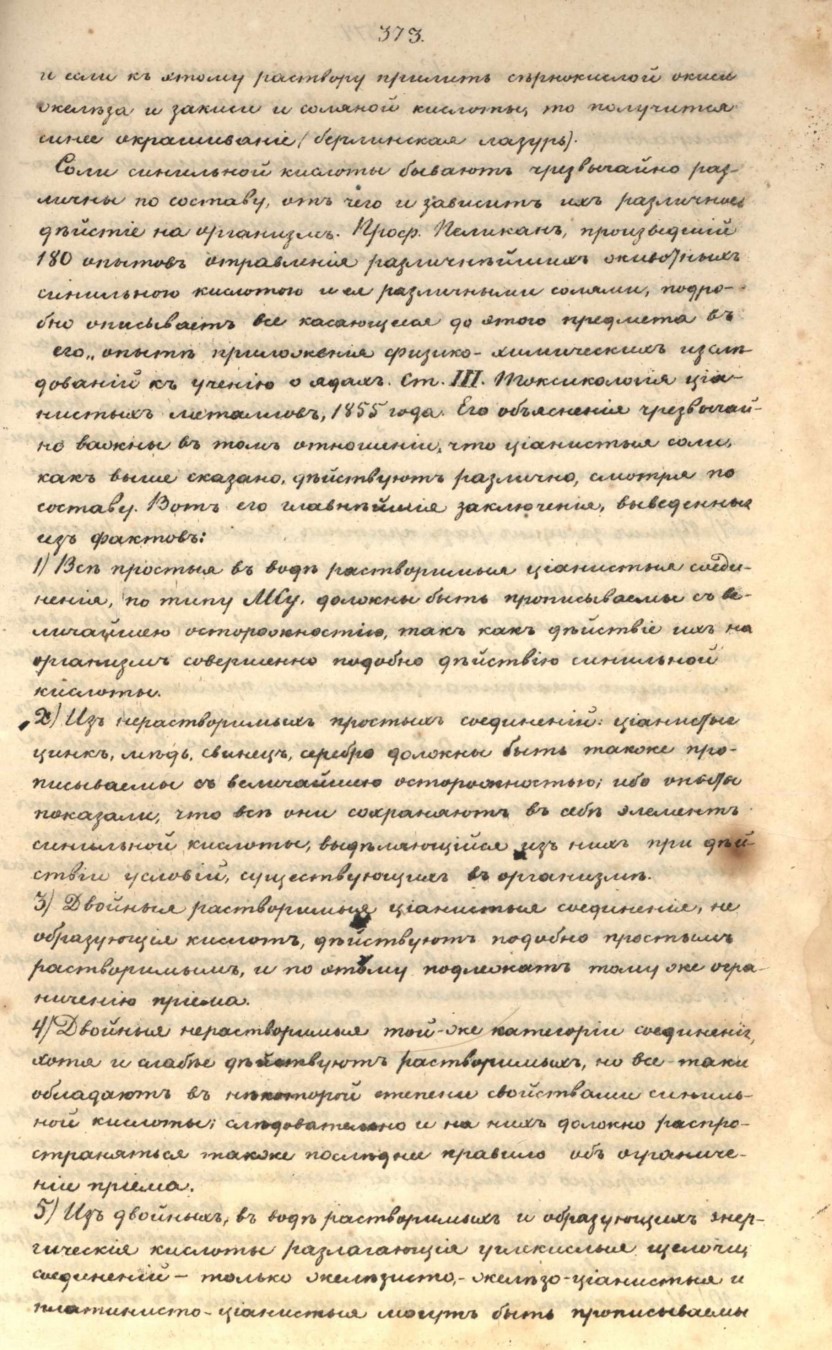 373.
и если къ этому раствору прилить сѣрнокислой окиси
желѣза и закиси и соляной кислоты, то получится
синее окрашиваніе (берлинская лазурь).
Соли синильной кислоты бываютъ чрезвычайно раз-
личны по составу, отъ чего и зависитъ ихъ различное
дѣйстіе на организмъ. Проф. Пеликанъ, произведшій
180 опытовъ отравленія различнѣйшихъ животныхъ
синильною кислотою и ея различными солями, подро-
бно описываетъ все касающееся до этого предмета въ
его „опытѣ приложенія физико-химическихъ изслѣ-
дованій къ ученію о ядахъ. Ст. III. Токсикологія ціа-
нистыхъ металловъ, 1855 года. Его объясненія чрезвычай-
но важны въ томъ отношеніи, что ціанистыя соли,
какъ выше сказано, дѣйствуютъ различно, смотря по
составу. Вотъ его главнѣйшія заключенія, выведенныя
изъ фактовъ:
1) Всѣ простыя въ водѣ растворимыя ціанистыя соеди-
ненія, по типу MCy, должны быть прописываемы съ ве-
личайшею осторожностію, такъ какъ дѣйствіе ихъ на
организмъ совершенно подобно дѣйствію синильной
кислоты.
2) Изъ нерастворимыхъ простыхъ соединеній: ціанистые
цинкъ, мѣдь, свинецъ, серебро должны быть также про-
писываемы съ величайшею осторожностью; ибо опыты
показали, что всѣ они сохраняютъ въ себѣ элементъ
синильной кислоты, выдѣляющійся изъ нихъ при дѣй-
ствіи условій, существующихъ въ организмѣ.
3) Двойныя растворимыя ціанистыя соединенія, не
образующія кислотъ, дѣйствуютъ подобно простымъ
растворимымъ, и по этому подлежатъ тому же огра-
ниченію пріема.
4) Двойныя нерастворимыя той-же категоріи соединенія,
хотя и слабѣе дѣйствуютъ растворимыхъ, но все таки
обладаютъ въ нѣкоторой степени свойствами синиль-
ной кислоты; слѣдовательно и на нихъ должно распро-
страняться также послѣднее правило объ ограниче-
ніи пріема.
5) Изъ двойныхъ, въ водѣ растворимыхъ и образующихъ энер-
гическія кислоты разлагающія углекислыя щелочи
соединеній – только желѣзисто,- желѣзо-ціанистыя и
платинисто-ціанистыя могутъ быть прописываемы